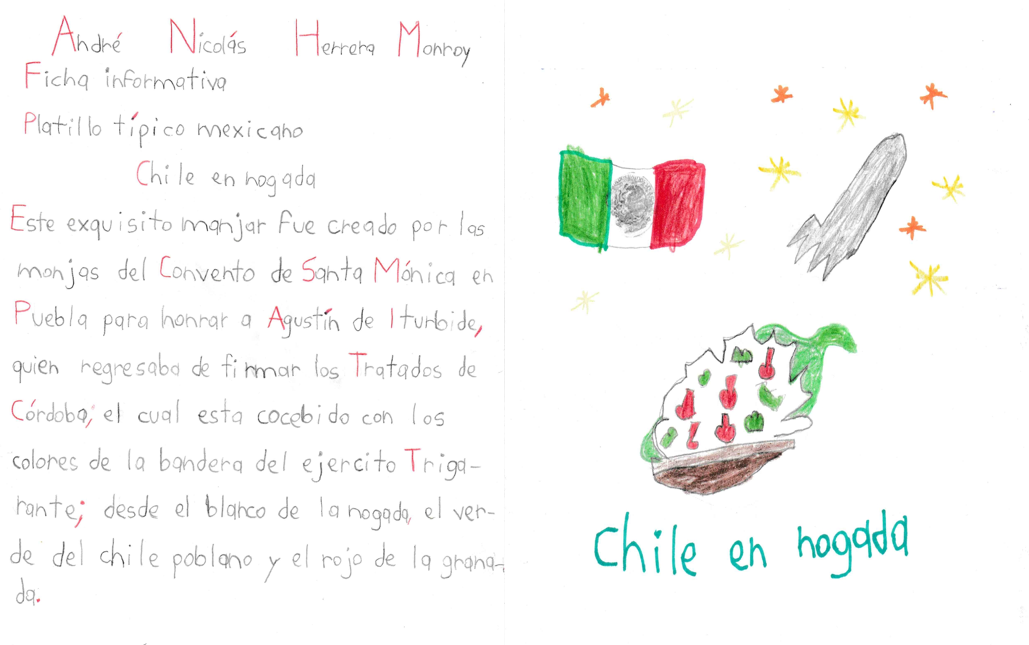 André Nicolás Herrera Monroy
Ficha informativa
Platillo típico mexicano
Chile en nogada
Este exquisito manjar fue creado por las
monjas del Convento de Santa Mónica en
Puebla para honrar a Agustín de Iturbide,
quien regresaba de firmar los Tratados de
Córdoba; el cual esta cocebido con los
colores de la bandera del ejercito Triga-
rante; desde el blanco de la nogada, el ver-
de del chile poblano y el rojo de la grana-
da.
Chile en nogada